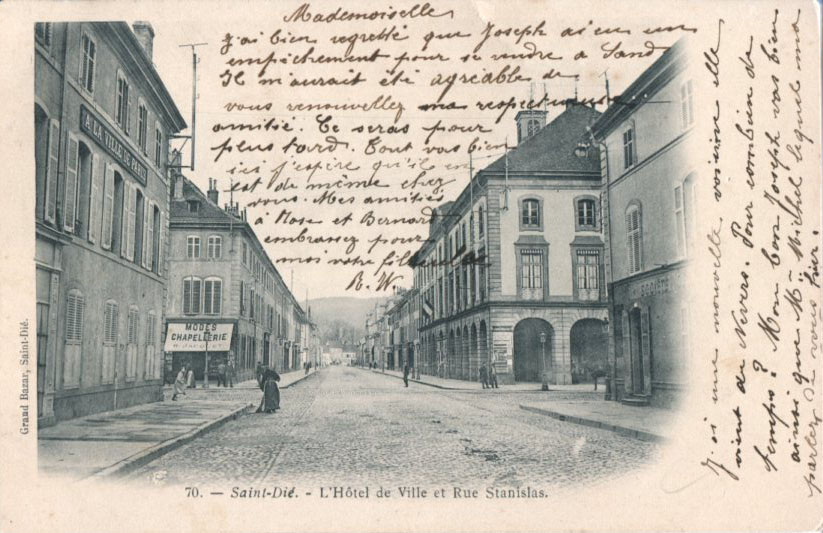 Mademoiselle,
J'ai bien regretté que Joseph ai eu un
empêchement pour se rendre à Sand
Il m'aurait été agréable de
vous renouveller ma respectueuse
amitié. Ce seras pour
plus tard. Tout vas bien
ici j'espère qu'il en
est de même chez
vous. Mes amitiés
à Rose et Bernard
embrassez pour
moi votre
R. W.
J'ai une nouvelle voisine elle
vient de Nevers. Pour combien de
temps? Mon bon Joseph vas bien
ainsi que M. Michel lequel ma
parlez de vous hier.
A LA VILLE DE PARIS
MODES
CHAPELLERIE
SOCIÉTÉ
Grand Bazar, Saint-Dié.
70. — Saint-Dié. - L'Hôtel de Ville et Rue Stanislas.